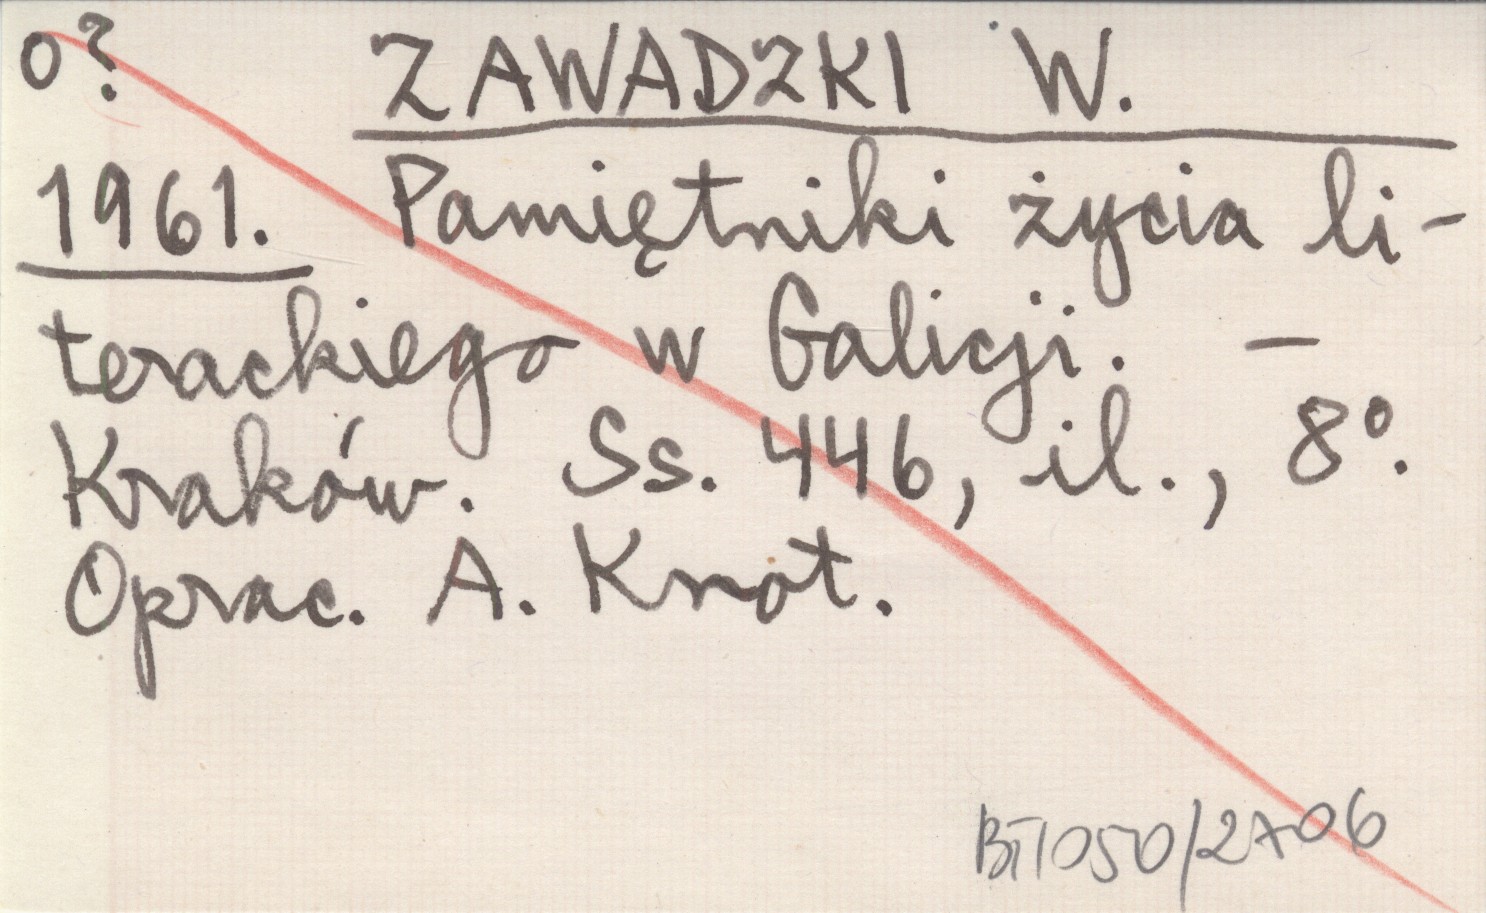 o? ZAWADZKI W.
1961. Pamiętniki życia li-
terackiego w Galicji. —
Kraków. Ss. 446, il., 8º.
Oprac. A. Knot.